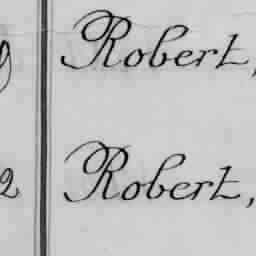 Robert,
2 Robert,